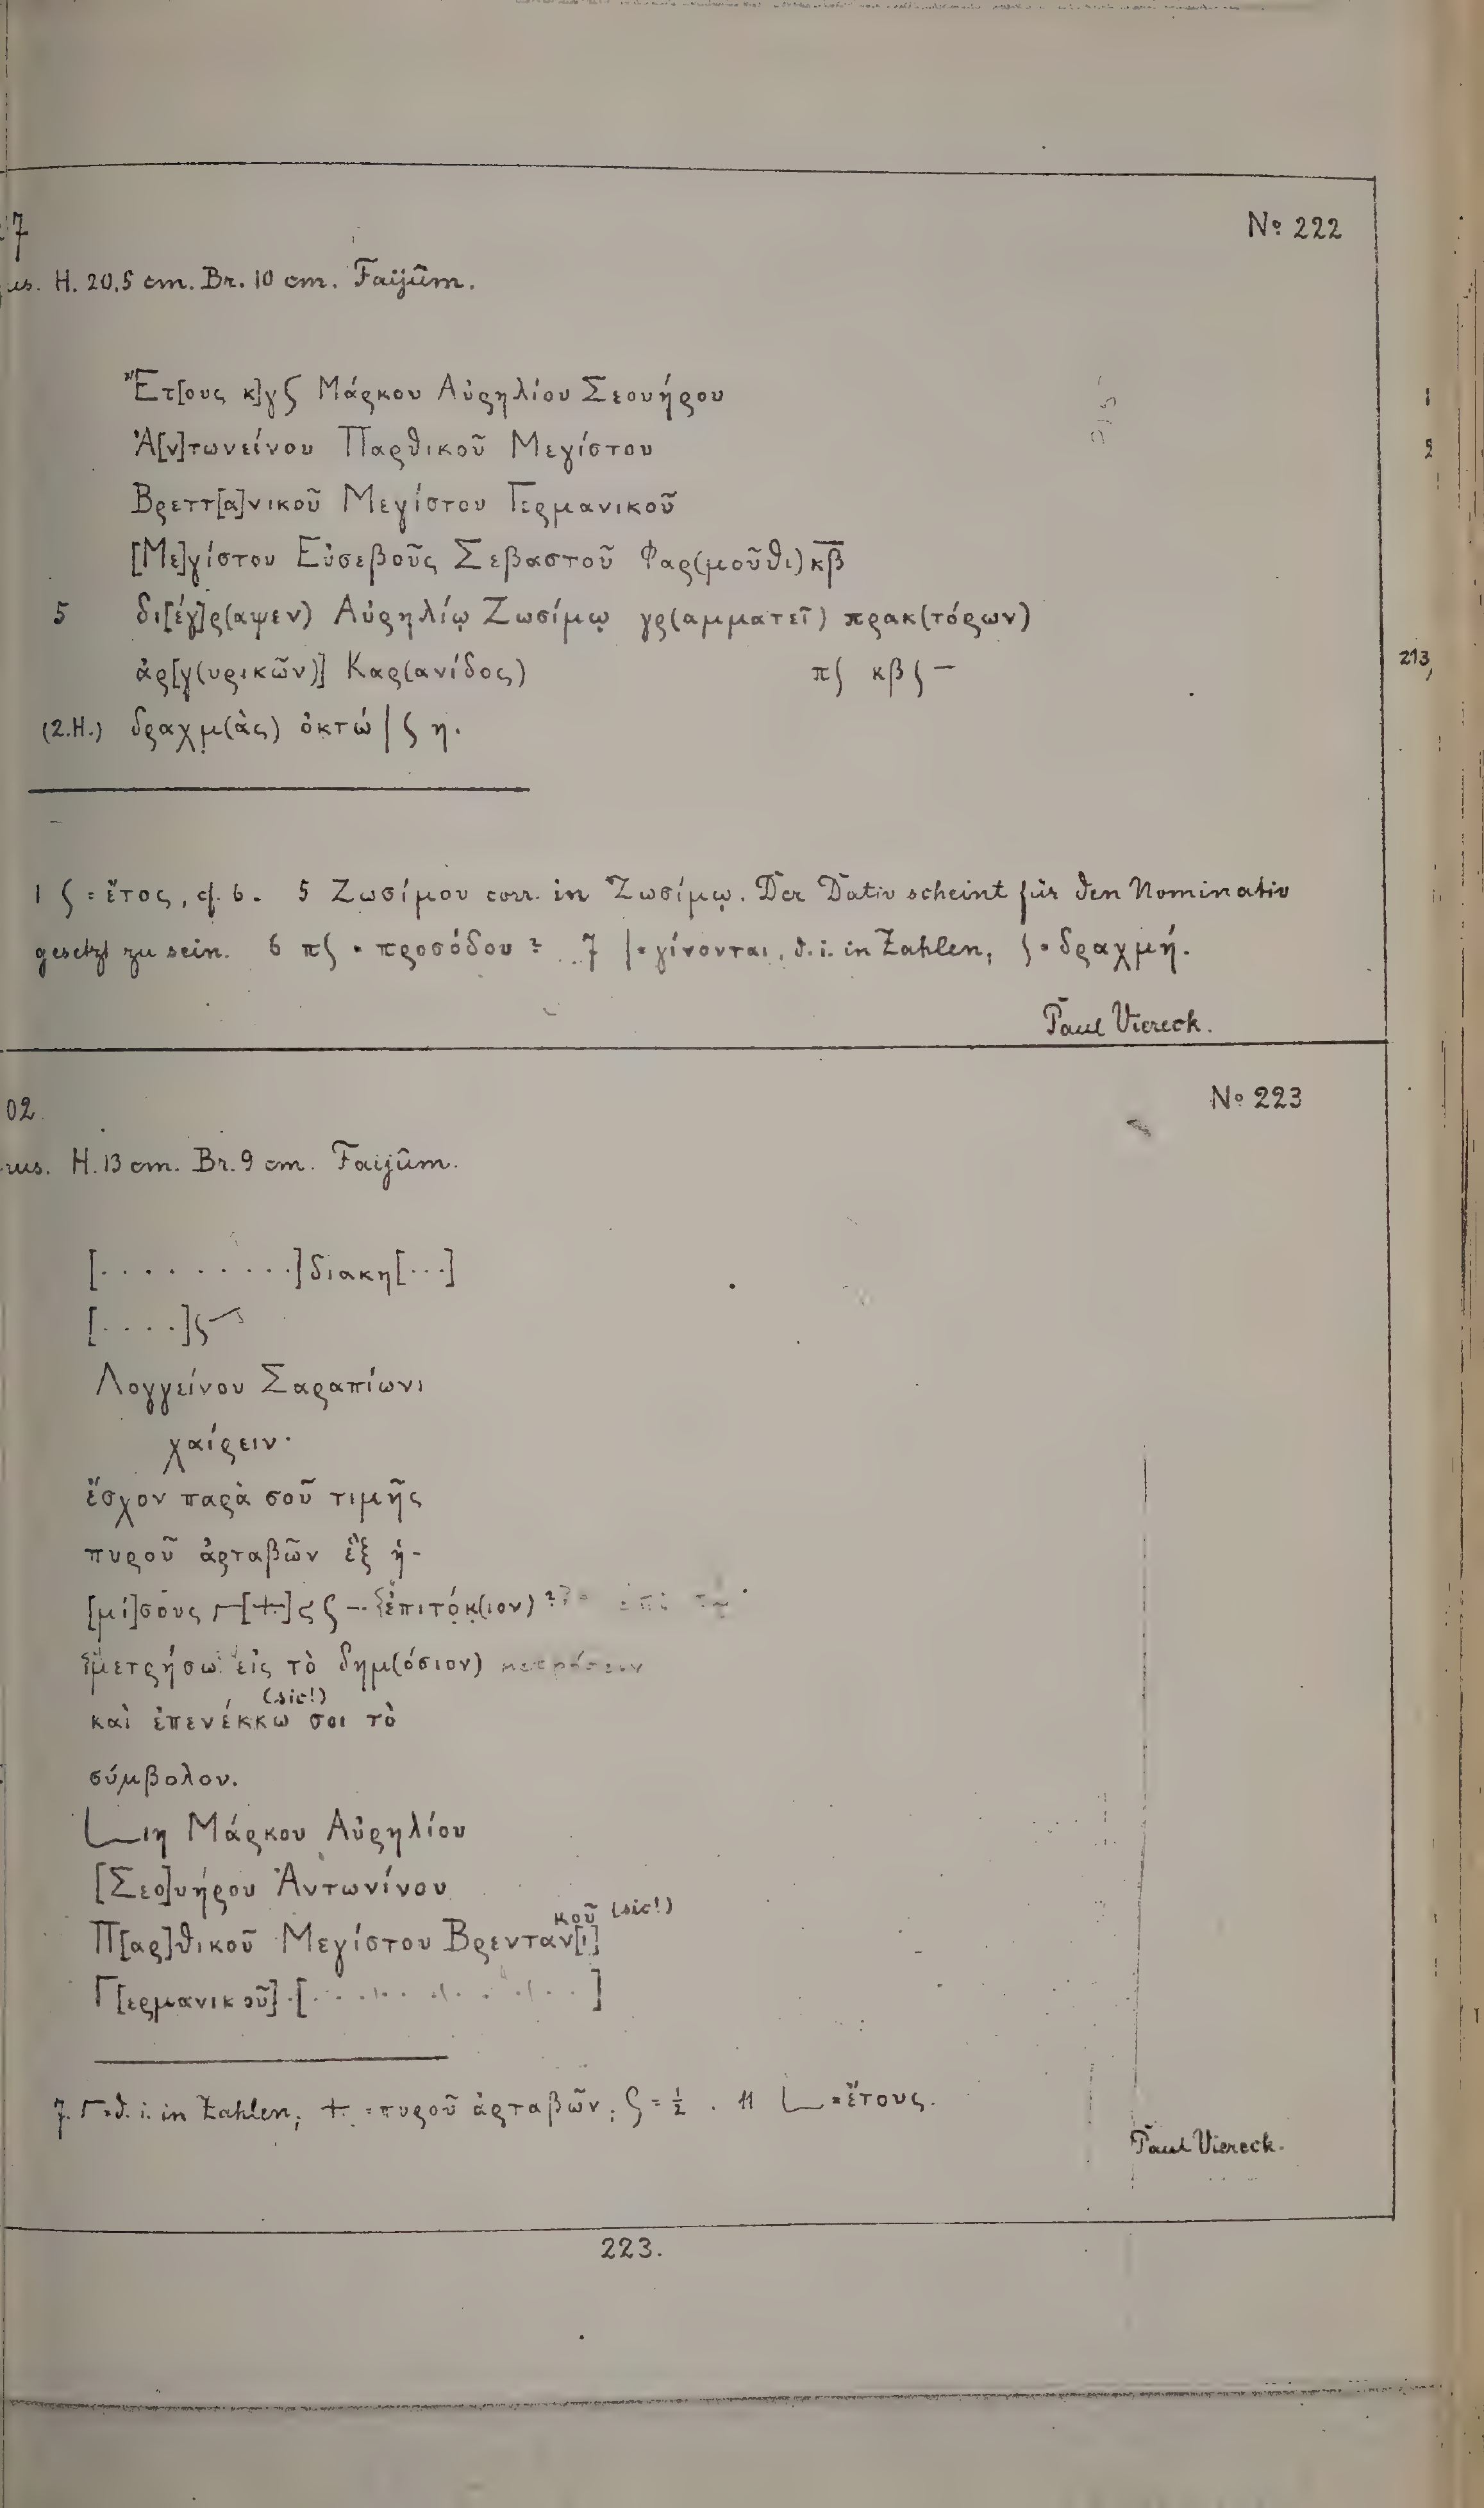 7
No 222
us. H. 20,5 cm. Br. 10 cm. Faijûm.
Ἔτ[ους κ]γς Μάρκου Αὐρηλίου Σεουήρου
Ἀ[ν]τωνείνου Παρθικοῦ Μεγίστου
Βρεττ[α]νικοῦ Μεγίστου Γερμανικοῦ
[Με]γίστου Εὐσεβοῦς Σεβαστοῦ Φαρ(μοῦθι) κβ
5 δι[έγ]ρ(αψεν) Αὐρηλίῳ Ζωσίμῳ γρ(αμματεῖ) πρακ(τόρων)
ἀρ[γ(υρικῶν)] Καρ(ανίδος) πς κβς –
213,
(2.H.) δραχμ(ὰς) ὀκτώ | ς η.
1 ς = ἔτος, cf. 6. 5 Ζωσίμου corr. in Ζωσίμῳ. Der Dativ scheint für den Nominativ
gesetzt zu sein. 6 πς = προσόδου? 7 | = γίνονται, d. i. in Zahlen, ς = δραχμή.
Paul Viereck.
02
No 223
rus. H. 13 cm. Br. 9 cm. Faijûm.
[. . . . . . . . .]διακη[...]
[. . . .]ς
Λογγείνου Σαραπίωνι
χαίρειν·
ἔσχον παρὰ σοῦ τιμῆς
πυροῦ ἀρταβῶν ἓξ ἡ-
[μί]σους ┌[+]ς ς – ἐπιτόκ(ιον)?
μετρήσω εἰς τὸ δημ(όσιον)
(sic!)
καὶ ἐπενέκκω σοι τὸ
σύμβολον.
L ιη Μάρκου Αὐρηλίου
[Σεο]υήρου Ἀντωνίνου
κοῦ (sic!)
Π[αρ]θικοῦ Μεγίστου Βρενταν[ι]
Γ[ερμανικοῦ] [. . . . . . . . . .]
7. ┌ = d. i. in Zahlen; + = πυροῦ ἀρταβῶν; ς = ½. 11 L = ἔτους.
Paul Viereck.
223.